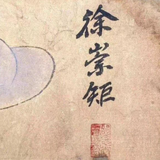 徐崇矩